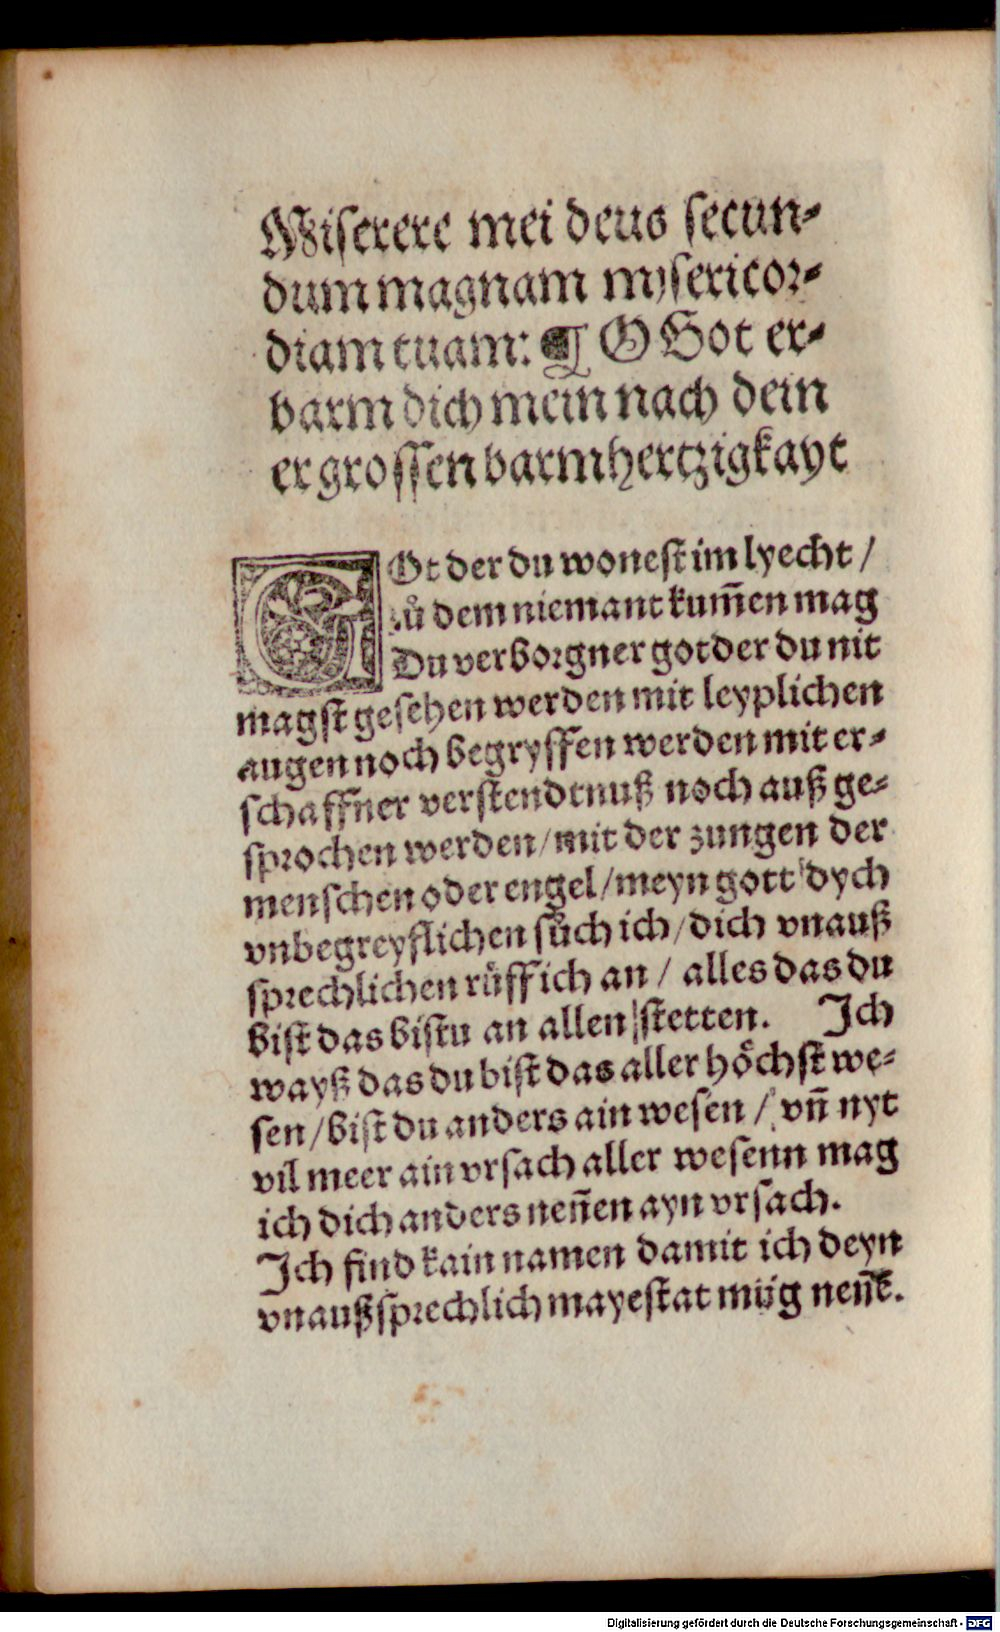 Miserere mei deus secun⸗
dum magnam mysericor⸗
diam tuam: ¶ O Got er⸗
barm dich mein nach dein
er grossen barmhertzigkayt
GOt der du wonest im lyecht /
zů dem niemant kum̄en mag
Du verborgner got der du nit
magst gesehen werden mit leyplichen
augen noch begryffen werden mit er⸗
schaffner verstendtnuß noch auß ge⸗
sprochen werden / mit der zungen der
menschen oder engel / meyn gott dych
vnbegreyflichen sůch ich / dich vnauß
sprechlichen růff ich an / alles das du
bist das bistu an allen stetten. Ich
wayß das du bist das aller höchst we⸗
sen / bist du anders ain wesen / vn̄ nyt
vil meer ain vrsach aller wesenn mag
ich dich anders nen̄en ayn vrsach.
Ich find kain namen damit ich deyn
vnaußsprechlich mayestat müg nen̄ē.
Digitalisierung gefördert durch die Deutsche Forschungsgemeinschaft - DFG